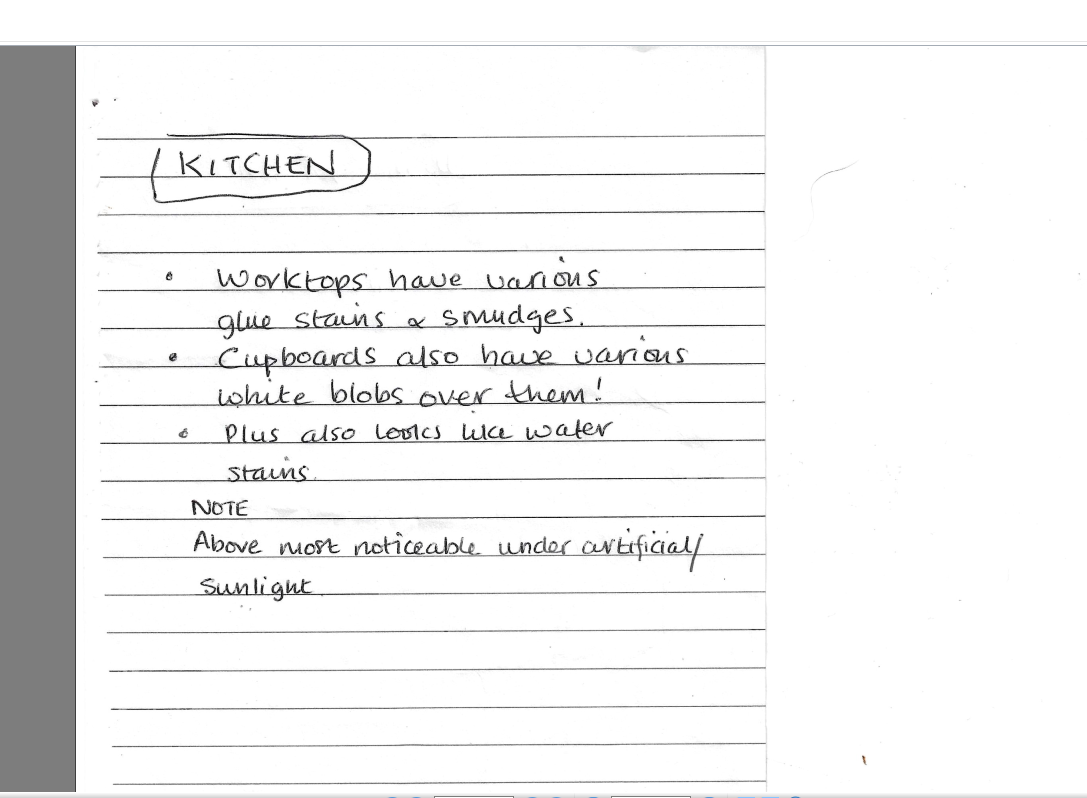 KITCHEN
• Worktops have various
glue stains & smudges.
• Cupboards also have various
white blobs over them!
• Plus also looks like water
stains.
NOTE
Above most noticeable under artificial/
sunlight